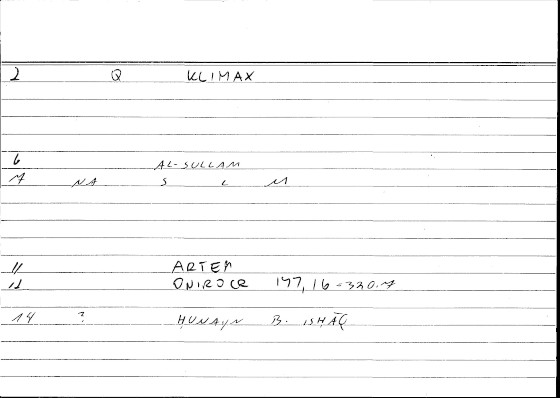 2 Q KLIMAX
6 AL-SULLAM
7 NA S L M
11 ARTEM
12 ONIROCR 177, 16-320.7
14 ? HUNAYN B. ISHĀQ